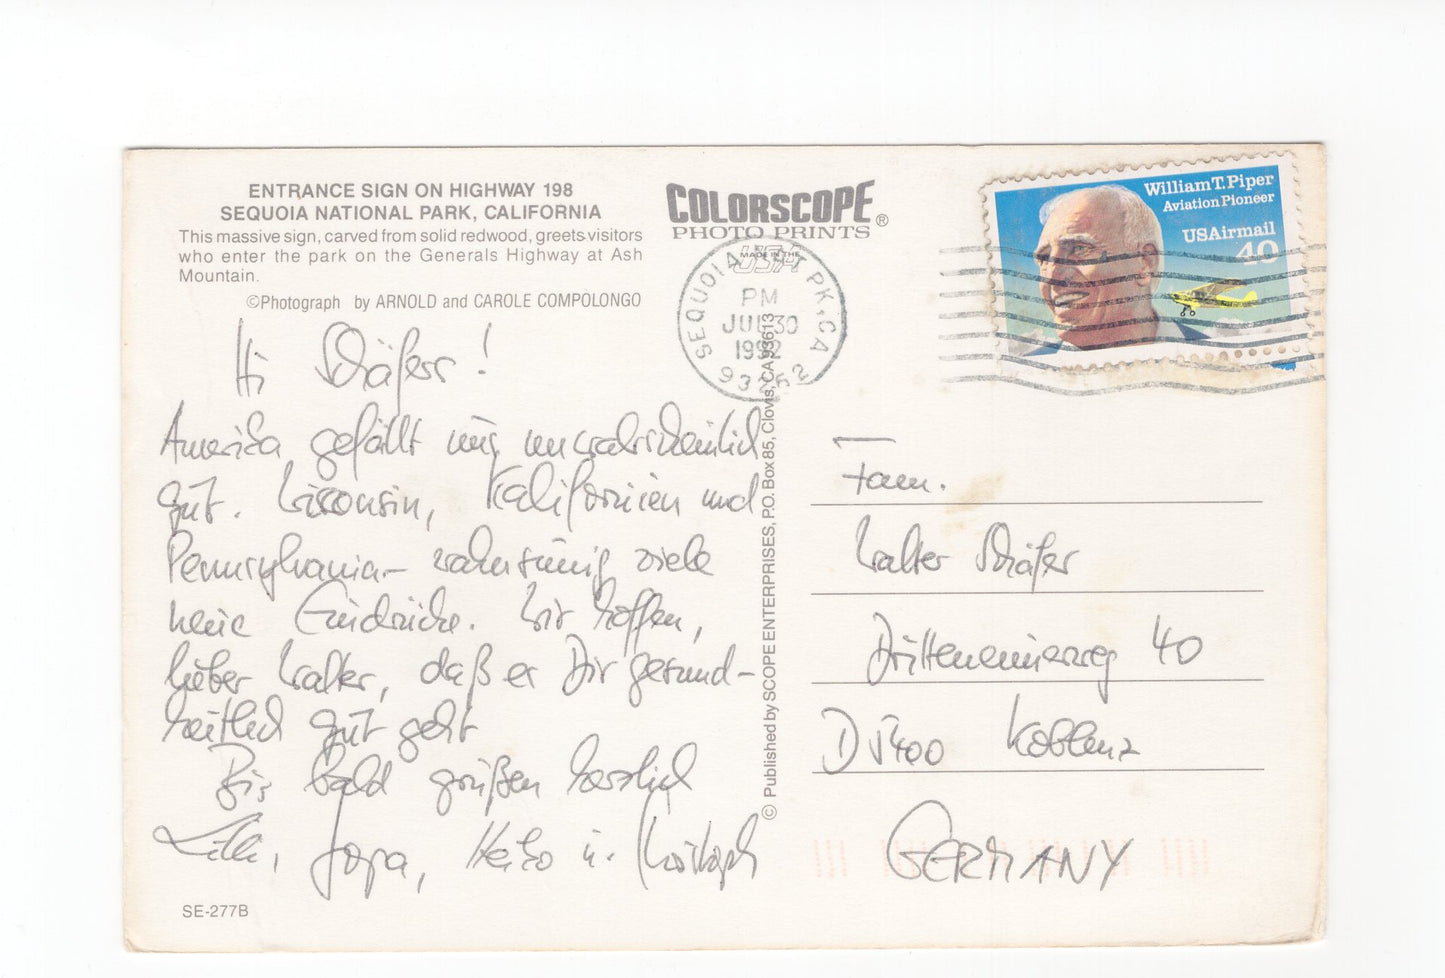 ENTRANCE SIGN ON HIGHWAY 198
SEQUOIA NATIONAL PARK, CALIFORNIA
This massive sign, carved from solid redwood, greets visitors
who enter the park on the Generals Highway at Ash
Mountain.
©Photograph by ARNOLD and CAROLE COMPOLONGO
COLORSCOPE®
PHOTO PRINTS
MADE IN THE
USA
SEQUOIA NAT PK, CA
PM
JUL 30
1992
93262
William T. Piper
Aviation Pioneer
USAirmail
40
Hi Schäfers!
America gefällt mir unwahrscheinlich
gut. Wisconsin, Kalifornien und
Pennsylvania – wahnsinnig viele
neue Eindrücke. Wir hoffen,
lieber Walter, daß es Dir gesund-
heitlich gut geht
Bis bald grüßen herzlich
Jopa, Heiko u. Christoph
SE-277B
© Published by SCOPE ENTERPRISES, P.O. Box 85, Clovis, CA 93613
Fam.
Walter Schäfer
40
D 5400 Koblenz
GERMANY